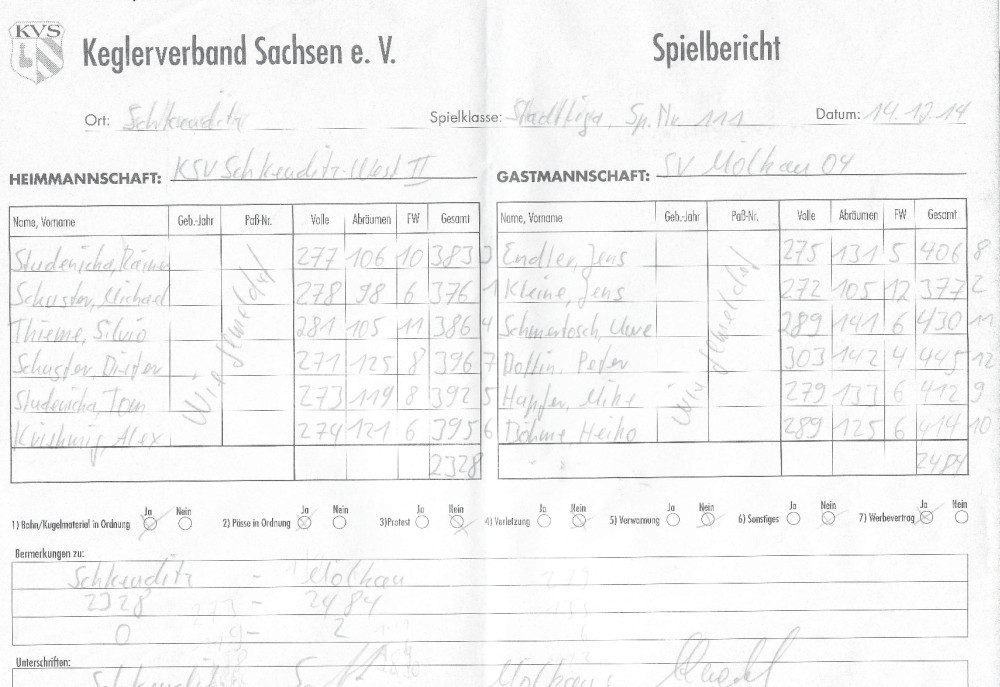 KVS
Keglerverband Sachsen e. V. Spielbericht
Ort: Schkeuditz Spielklasse: Stadtliga, Sp. Nr. 111 Datum: 14.12.14
HEIMMANNSCHAFT: KSV Schkeuditz-West II GASTMANNSCHAFT: SV Mölkau 04
Name, Vorname Geb.-Jahr Paß-Nr. Volle Abräumen FW Gesamt Name, Vorname Geb.-Jahr Paß-Nr. Volle Abräumen FW Gesamt
Studenicha, Rainer 277 106 10 383 3 Endler, Jens 275 131 5 406 8
Schuster, Michael 278 98 6 376 1 Kleine, Jens 272 105 12 377 2
Thieme, Silvio 281 105 11 386 4 Schmertosch, Uwe 289 141 6 430 11
Schuster, Dieter 271 125 8 396 7 Peter 303 142 4 445 12
Studenicha, Tom 273 119 8 392 5 Hupfer, Mike 279 133 6 412 9
Alex 274 121 6 395 6 Böhme, Heiko 289 125 6 414 10
Wie gemeldet Wie gemeldet
2328 2484
1) Bahn/Kugelmaterial in Ordnung Ja Nein 2) Pässe in Ordnung Ja Nein 3)Protest Ja Nein 4) Verletzung Ja Nein 5) Verwarnung Ja Nein 6) Sonstiges Ja Nein 7) Werbevertrag Ja Nein
Bermerkungen zu:
Schkeuditz - Mölkau
2328 - 2484
0 - 2
Unterschriften:
Schkeuditz Mölkau: